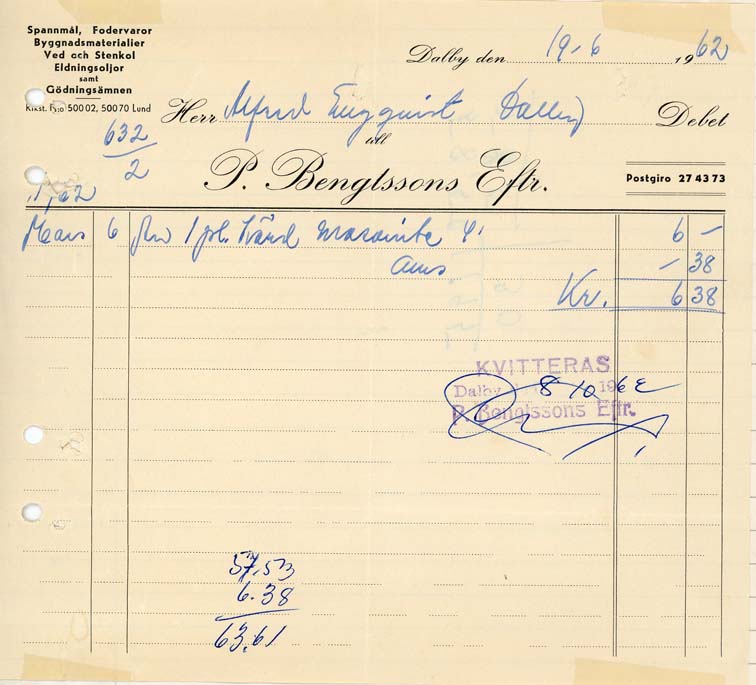 Spannmål, Fodervaror
Byggnadsmaterialier
Ved och Stenkol
Eldningsoljor
samt
Gödningsämnen
Rikst. 500 02, 500 70 Lund
Dalby den 19-6 1962
Herr Alfred Engquist Dalby Debet
till
632
2
P. Bengtssons Eftr.
Postgiro 27 43 73
Mars 6 1 Hård Masonite 6 -
Oms - 38
Kr. 6 38
KVITTERAS
Dalby 8 10 1962
P. Bengtssons Eftr.
57,53
6.38
63,61